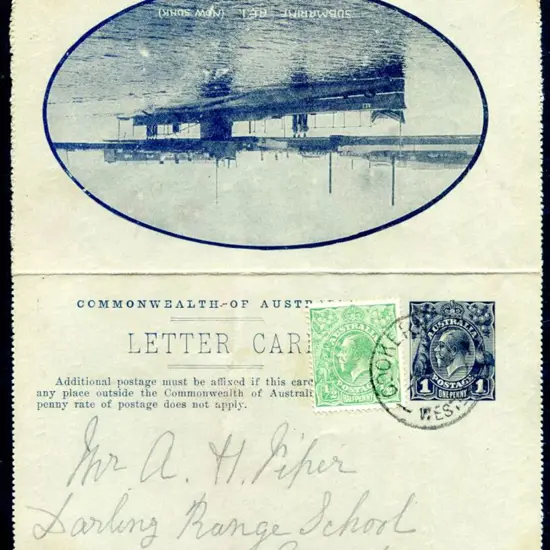 SUBMARINE AE1. (NOW SUNK)
COMMONWEALTH OF AUSTRALIA
LETTER CAR
Additional postage must be affixed if this car
any place outside the Commonwealth of Australi
penny rate of postage does not apply.
AUSTRALIA
POSTAGE
HALFPENNY
AUSTRALIA
1 POSTAGE 1
ONE PENNY
WES
Mr A. H. Piper
Darling Range School